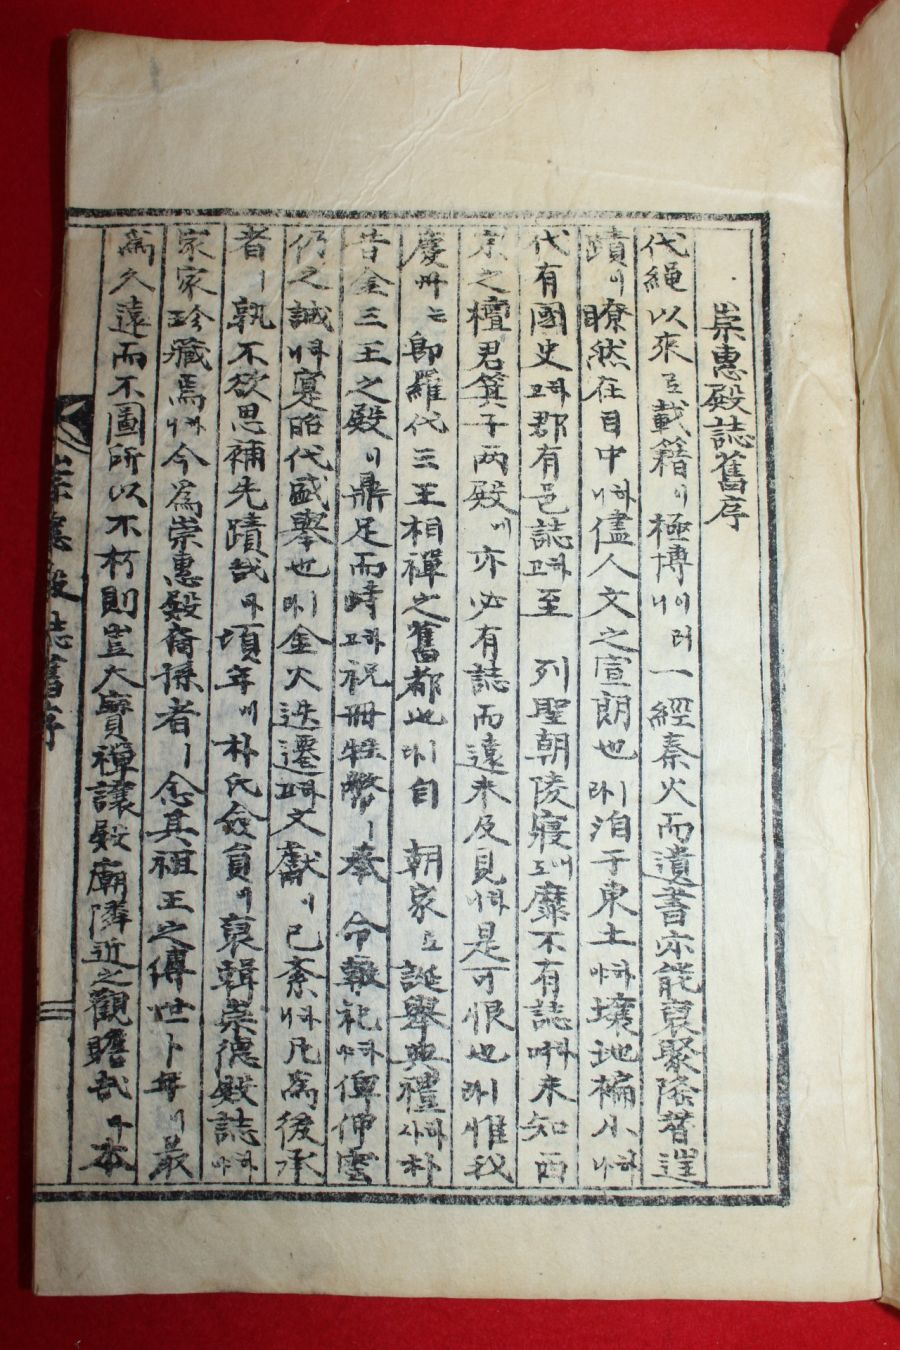 崇惠殿誌舊序
代繩以來로載籍이極博이니러一經秦火而遺書亦能裒聚隆著
蹟이瞭然在目中하니儘人文之宣朗也라洎于東土하야壤地褊小하나
代有國史하고郡有邑誌하고至 列聖朝陵寢도靡不有誌未知西
京之檀君箕子两殿에亦必有誌而遠未及見하니是可恨也라惟我
慶州는卽羅代三王相禪之舊都也라自 朝家로誕擧典禮하사朴
昔金三王之殿이鼎足而峙하고祝冊牲幣ㅣ奉 令報祀하야俾伸雲
仍之誠하니寔昭代盛擧也라金火迭遷하고文獻이已紊하니凡爲後承
者ㅣ孰不欲思補先蹟哉아頃年에朴氏僉員이裒輯崇德殿誌하야
家家珍藏焉하니今爲崇惠殿裔孫者ㅣ念其祖王之傳世卜年이最
爲久遠而不圖所以不朽則豈大寶禪讓殿廟隣近之觀瞻哉아本
崇惠殿誌舊序